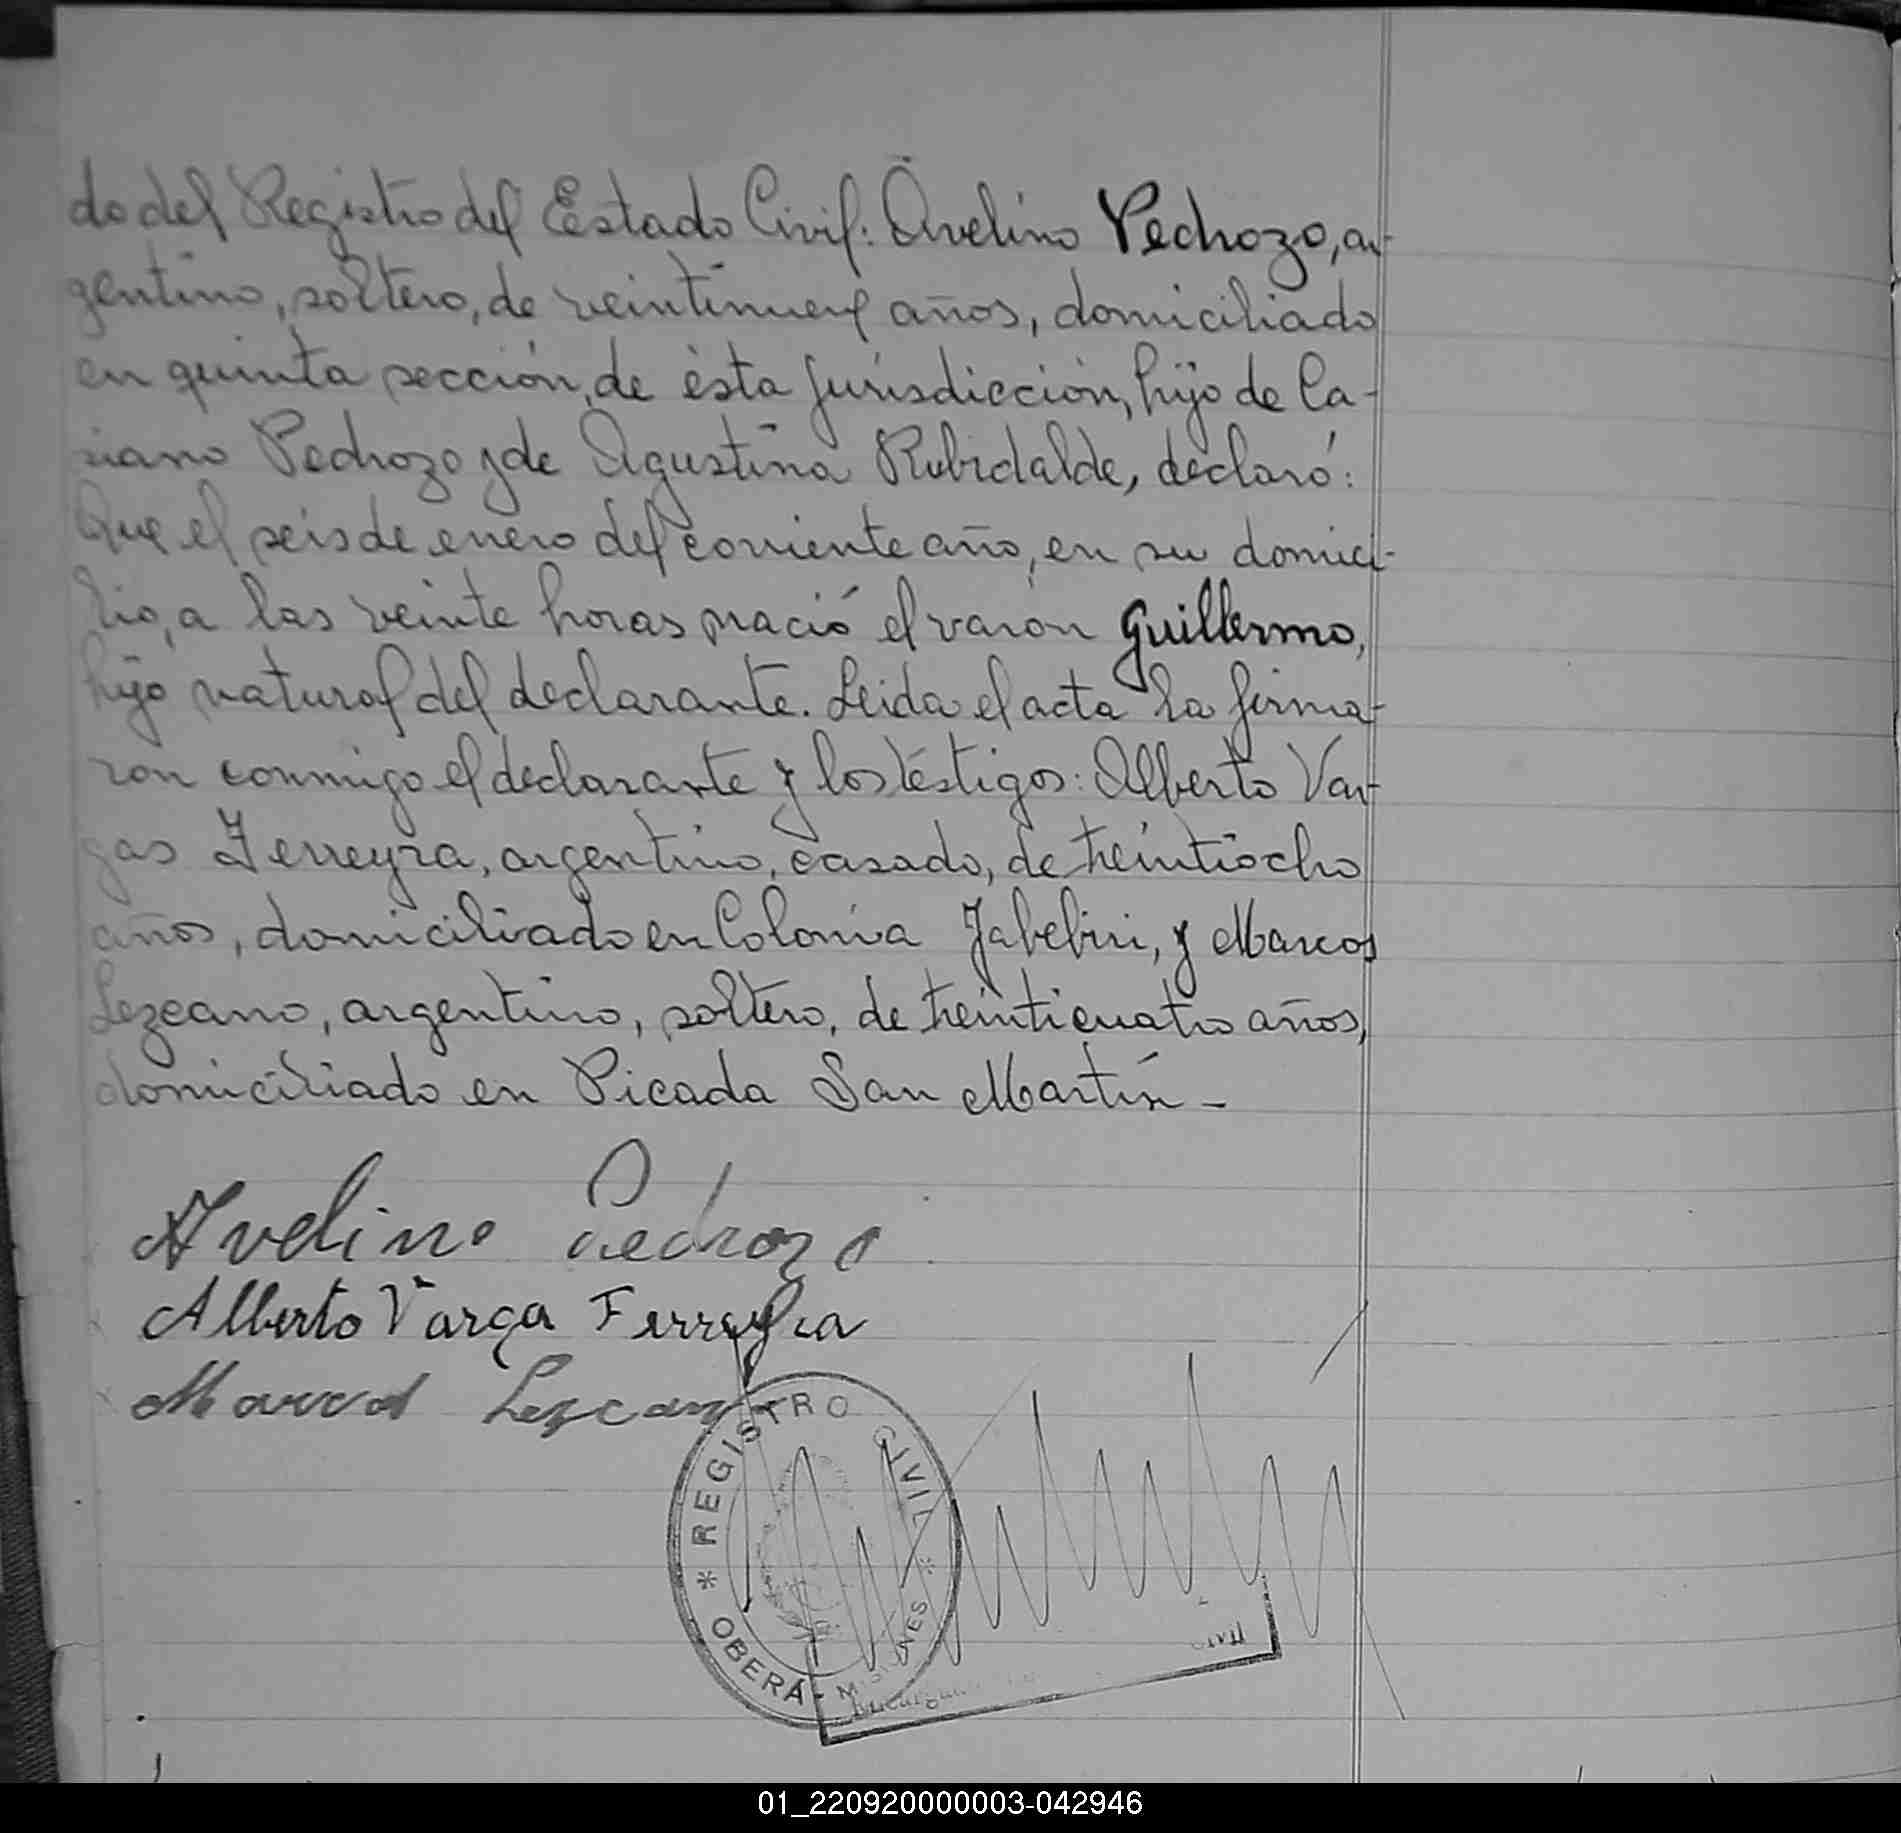 do del Registro del Estado Civil: Avelino Pedrozo, ar-
gentino, soltero, de veintinueve años, domiciliado
en quinta sección, de ésta jurisdicción, hijo de Ca-
siano Pedrozo y de Agustina Rubidalde, declaró:
Que el seis de enero del corriente año, en su domici-
lio, a las veinte horas nació el varón Guillermo,
hijo natural del declarante. Leida el acta la firma-
ron conmigo el declarante y los téstigos: Alberto Var-
gas Ferreyra, argentino, casado, de treintiocho
años, domiciliado en Colonia Yabebiri, y Marcos
Lezcano, argentino, soltero, de treinticuatro años,
domiciliado en Picada San Martín -
Avelino Pedrozo
Alberto Varga Ferreyra
Marcos Lezcano
* REGISTRO CIVIL *
OBERÁ - MISIONES
01_220920000003-042946